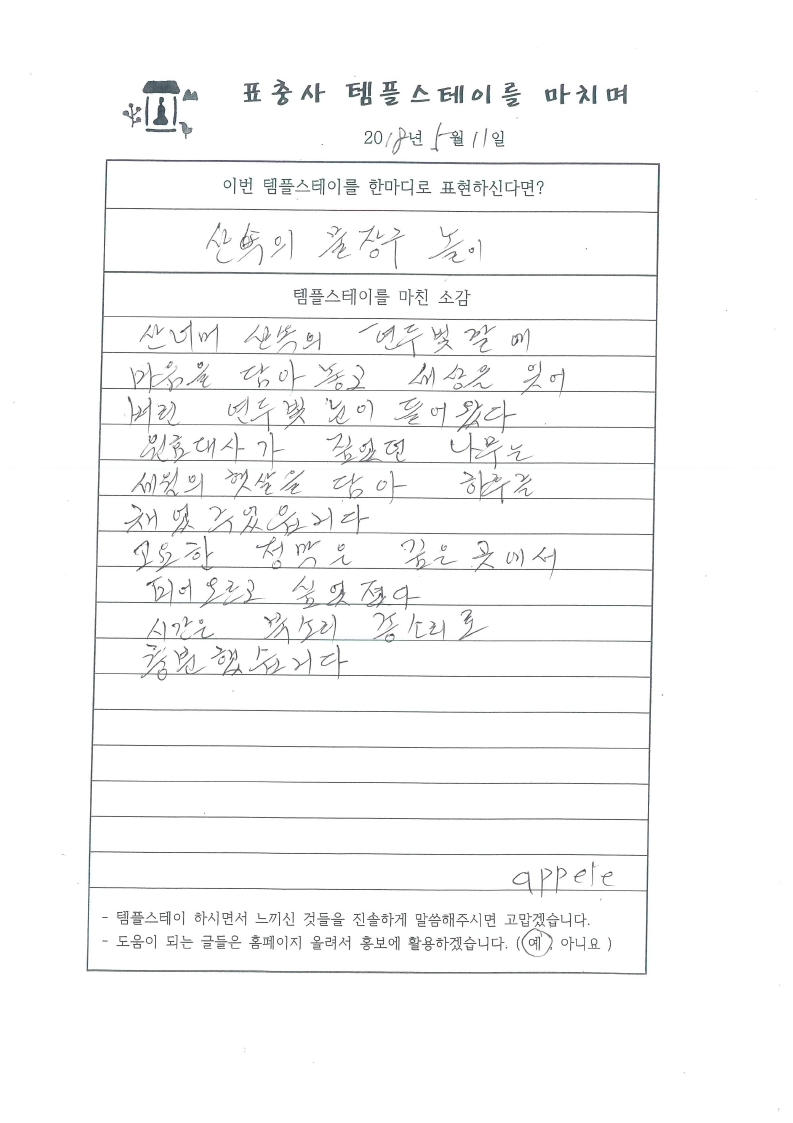 표충사 템플스테이를 마치며
2018년 5월 11일
이번 템플스테이를 한마디로 표현하신다면?
산속의 물장구 놀이
템플스테이를 마친 소감
산너머 산속의 연두빛깔에
마음을 담아놓고 세상을 잊어
버린 연두빛 눈이 들어왔다
원효대사가 짚었던 나무는
세월의 햇살을 담아 하루를
채었
고요한 정막은 깊은 곳에서
피어오르고
시간은 북소리 종소리로
appele
- 템플스테이 하시면서 느끼신 것들을 진솔하게 말씀해주시면 고맙겠습니다.
- 도움이 되는 글들은 홈페이지 올려서 홍보에 활용하겠습니다. ( 예 , 아니요 )